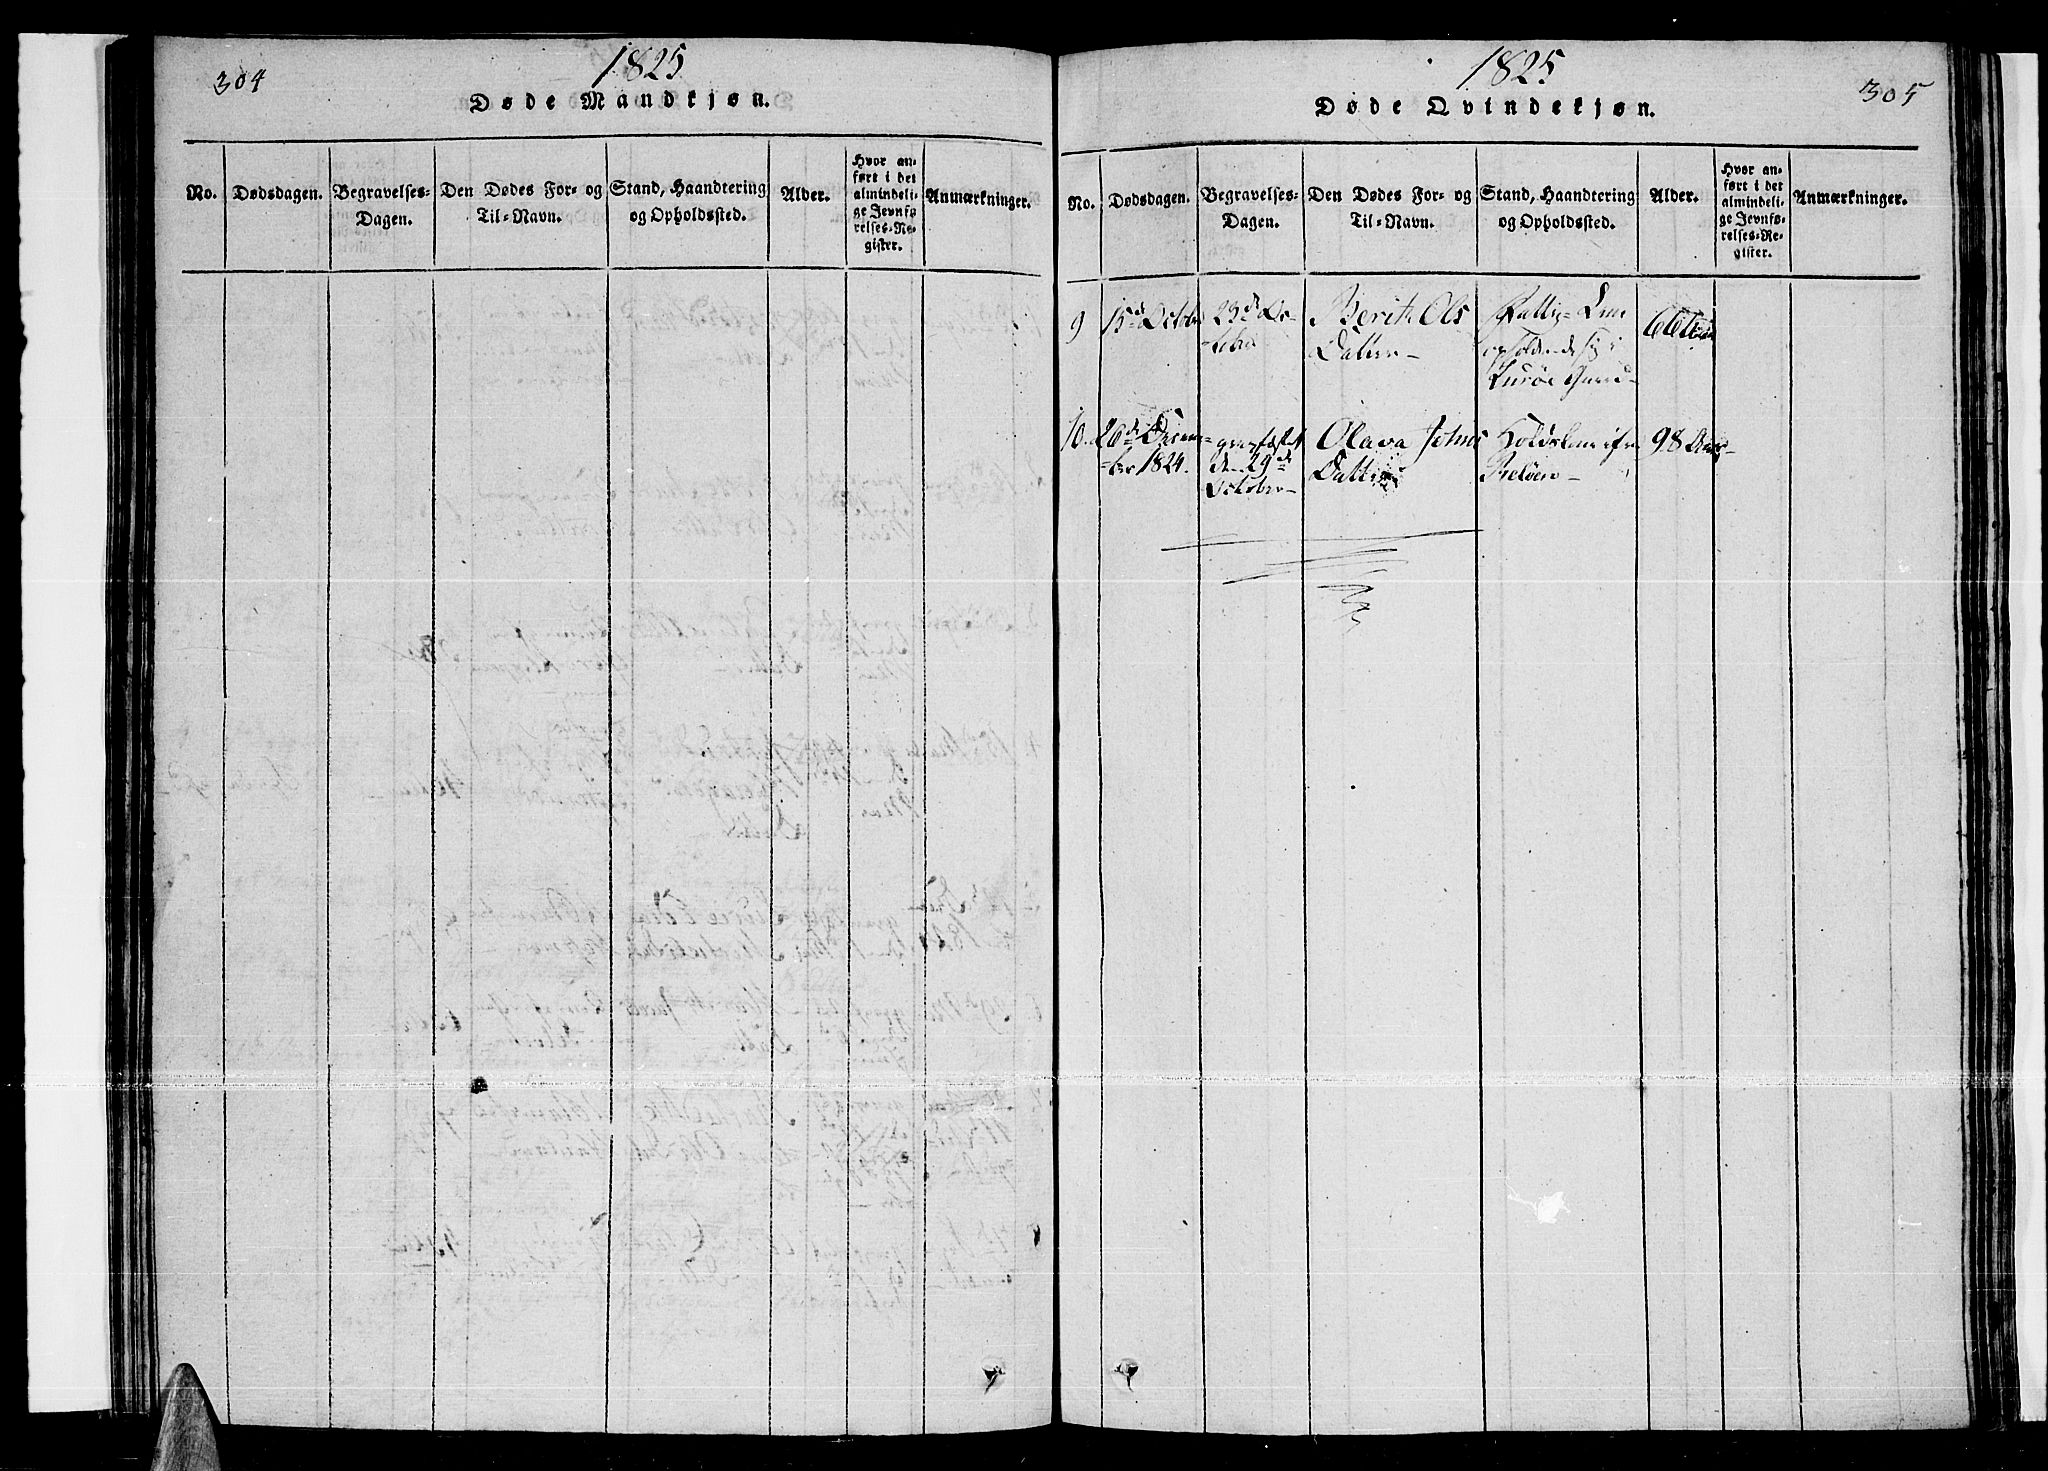 304
1825
Døde Mandkjøn.
No.
Dødsdagen.
Begravelses-
Dagen.
Den Dødes For- og
Til-Navn.
Stand, Haandtering
og Opholdssted.
Alder.
Hvor an-
ført i det
almindeli-
ge Jevnfø-
relses-Re-
gister.
Anmærkninger.
1825
305
Døde Qvindekjøn.
No.
Dødsdagen.
Begravelses-
Dagen.
Den Dødes For- og
Til-Navn.
Stand, Haandtering
og Opholdssted.
Alder.
Hvor an-
ført i det
almindeli-
ge Jevnfø-
relses-Re-
gister.
Anmærkninger.
9
15de Octobr
23de Oc-
-tobr
Berit Ols
Datter-
Fattig-Lem
opholdende sig i
Lurøe
10.
26de Decem-
-ber 1824.
gravfæstet
den 29de
October-
Olava Johns
Datter
Holdslem ifra
98 Aar